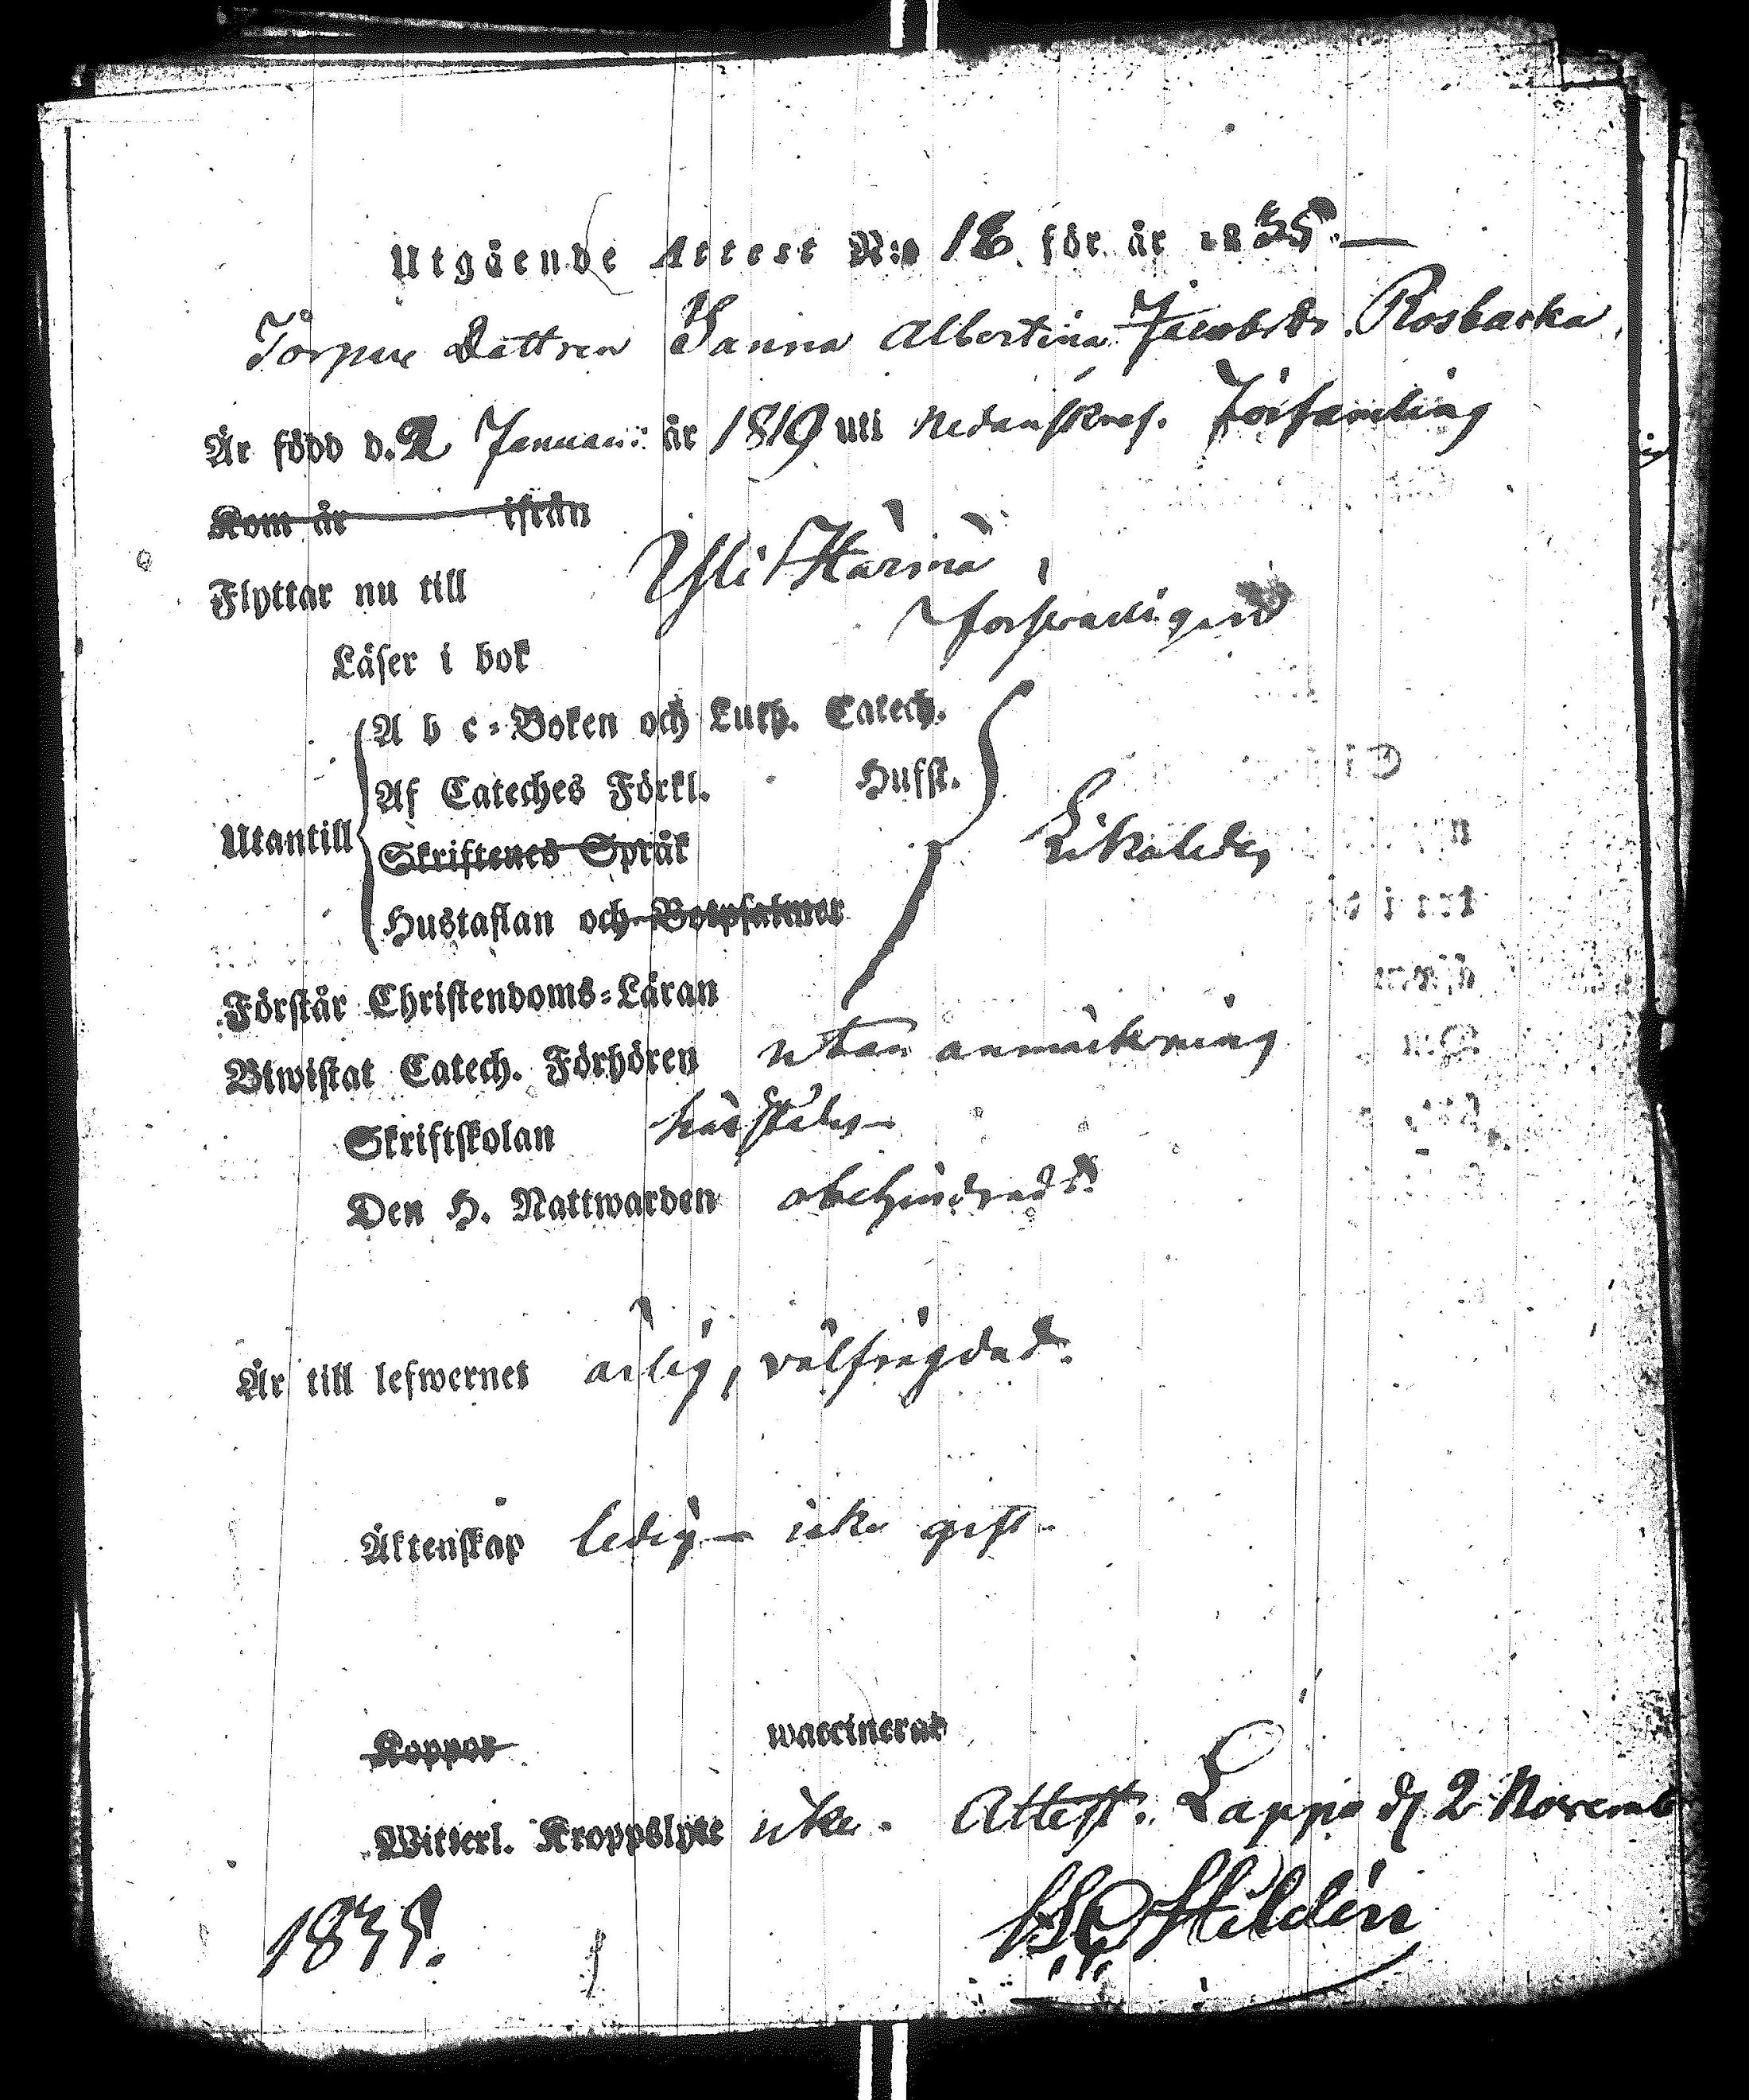 Utgående Attest N:o 12 för år 1835.
Torpare Dattren Sanna Albertina Jacobsdr Rosbacka
Är född d. 2 Januarii år 1819 uti nedanskrefs. Församling
Kom år ifrån
Flyttar nu till Yli Härmä,
Läser i bok försvarligen
A b c-Boken och Luth. Catech.
Af Cateches Förkl. Hufst.
Utantill Skriftenes Språk Likaledes
Hustaflan och Botpsalmer
Förstår Christendoms-Läran
Biwistat Catech. Förhören utan anmärkning
Skriftskolan härstädes
Den H. Nattwarden obehindrad
Är till lefwernet ärlig, välfrägdad.
Äktenskap ledig – icke gift.
Koppor waccinerad
Witterl. Kroppslyte icke. Attest. Lappo d. 2 Novemb
1835. Hildén